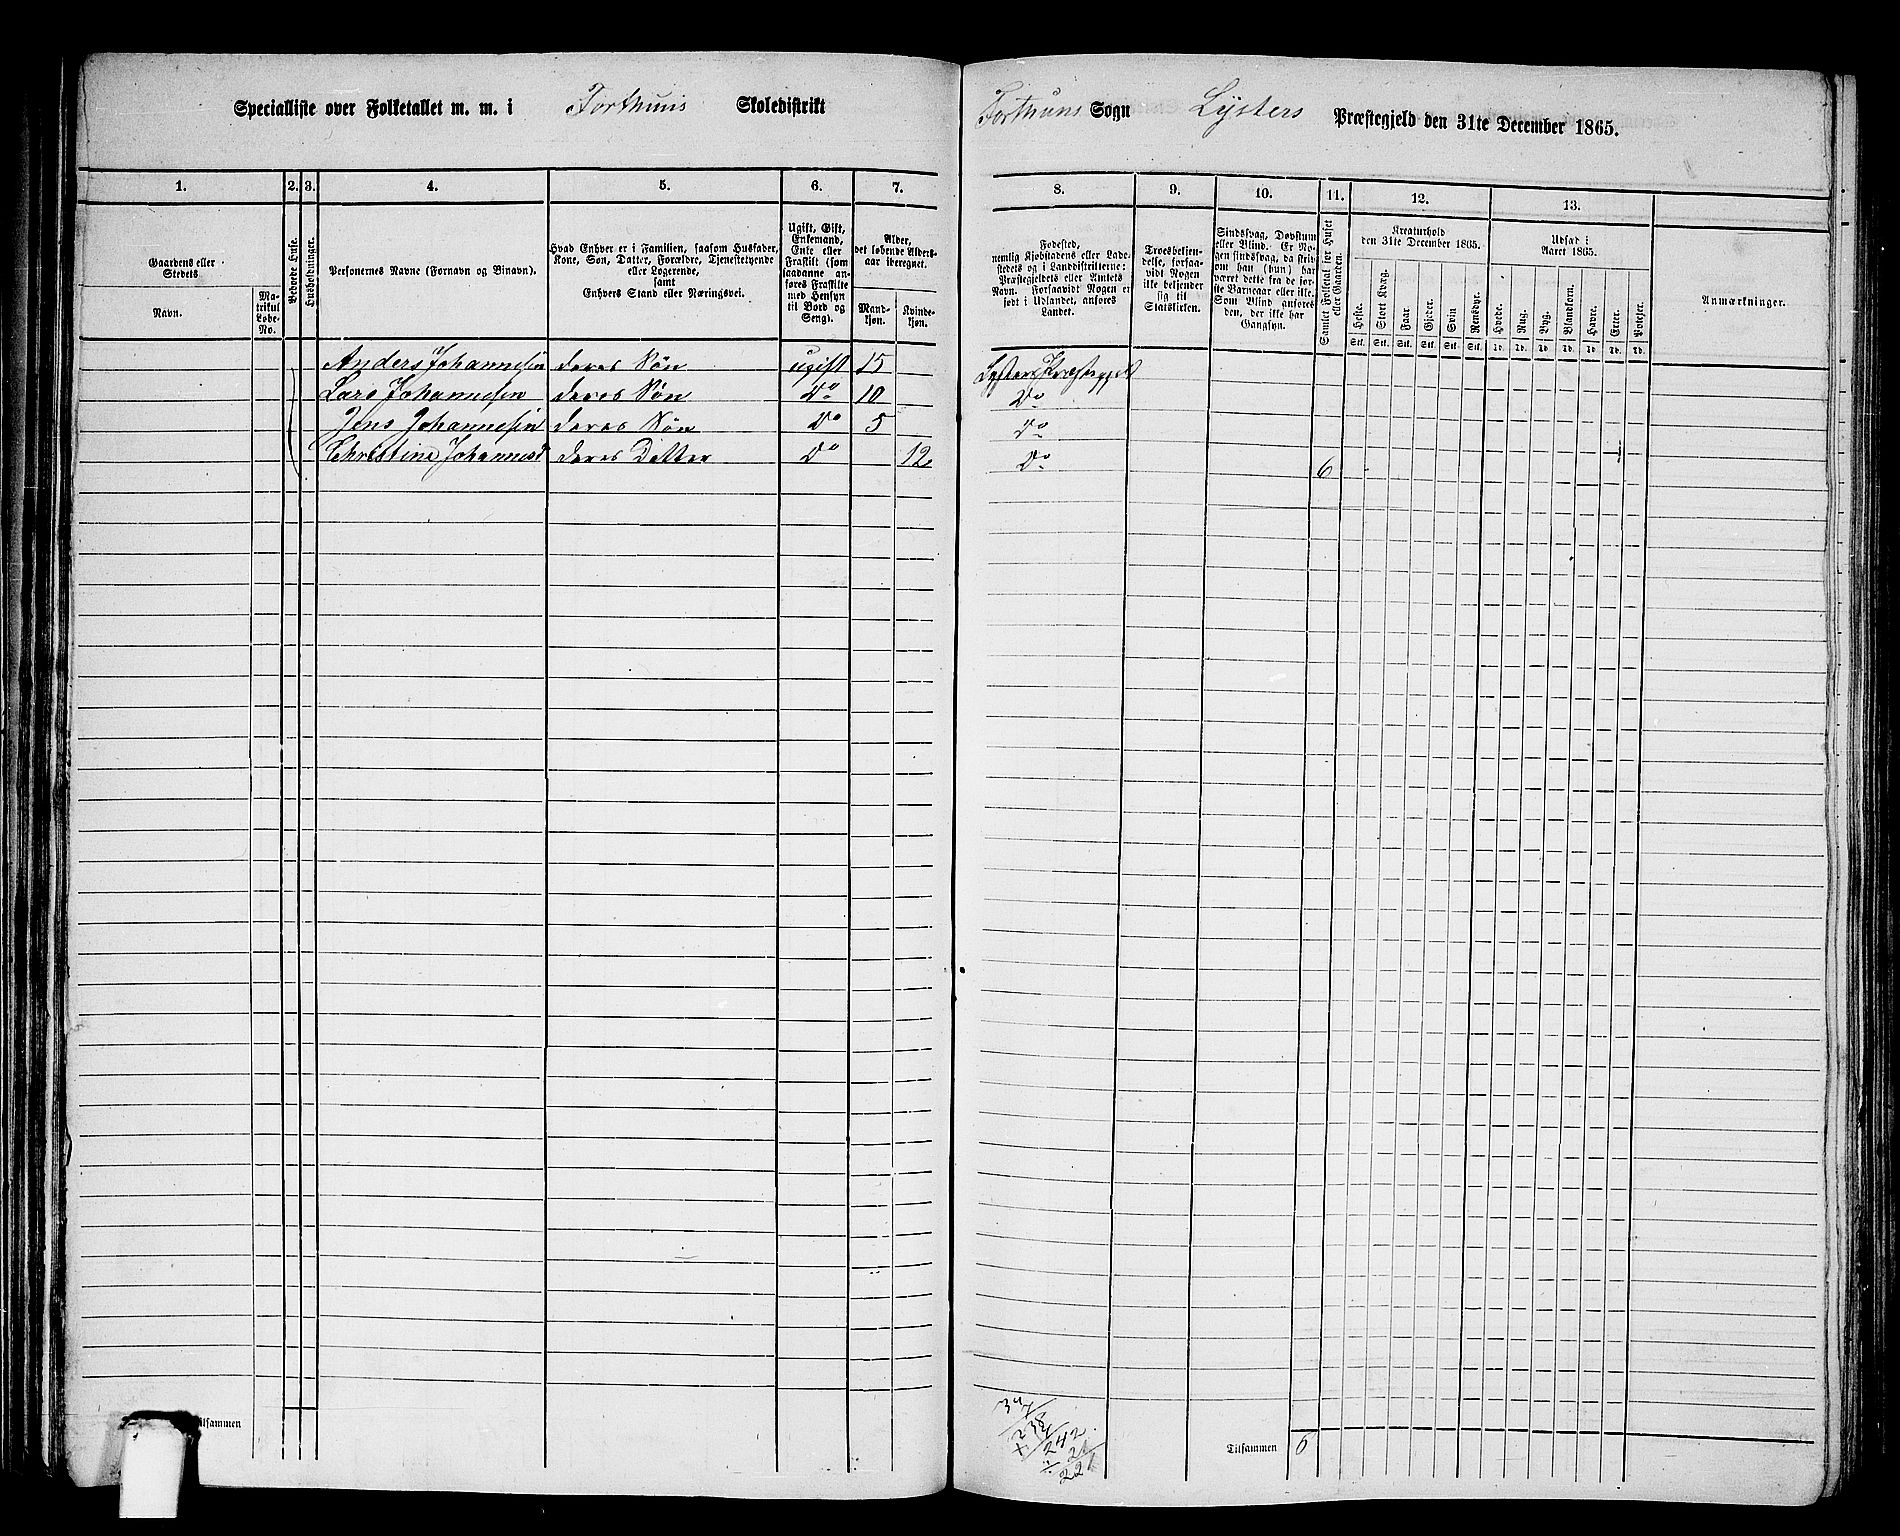 Specialliste over Folketallet m. m. i Forthuns Skoledistrikt Forthuns Sogn Lysters Præstegjeld den 31te December 1865.
1. 2. 3. 4. 5. 6. 7. 8. 9. 10. 11. 12. 13.
Gaardens eller Stedets
Navn.
Matrikul Løbe-No.
Beboede Huse.
Husholdninger.
Personernes Navne (Fornavn og Binavn).
Hvad Enhver er i Familien, saasom Husfader, Kone, Søn, Datter, Forældre, Tjenestetyende eller Logerende, samt Enhvers Stand eller Næringsvei.
Ugift, Gift, Enkemand, Enke eller Fraskilt (som saadanne anføres Fraskilte med Hensyn til Bord og Seng).
Alder, det løbende Alders-aar iberegnet.
Mand-kjøn.
Kvinde-kjøn.
Fødested, nemlig Kjøbstadens eller Ladestedets og i Landdistrikterne: Præstegjeldets eller Amtets Navn. Forsaavidt Nogen er født i Udlandet, anføres Landet.
Troesbekjendelse, forsaavidt Nogen ikke bekjender sig til Statskirken.
Sindssvag, Døvstum eller Blind. Er Nogen sindssvag, da skrives om han (hun) har været dette fra de første Barneaar eller ikke. Som Blind anføres den, der ikke har Gangsyn.
Samlet Folketal for Huset eller Gaarden.
Kreaturhold den 31te December 1865.
Heste. Stort Kvæg. Faar. Gjeder. Svin. Rensdyr.
Stk. Stk. Stk. Stk. Stk. Stk.
Udsæd i Aaret 1865.
Hvede. Rug. Byg. Blandkorn. Havre. Erter. Poteter.
Td. Td. Td. Td. Td. Td. Td.
Anmærkninger.
Anders Johannesen deres Søn ugift 15 Lysters Præstegjeld
Lars Johannesen deres Søn Do 10 Do
Jens Johannesen deres Søn Do 5 Do
Christine Johannesd deres Datter Do 12 Do 6
Tilsammen
Tilsammen 6
238
242
221